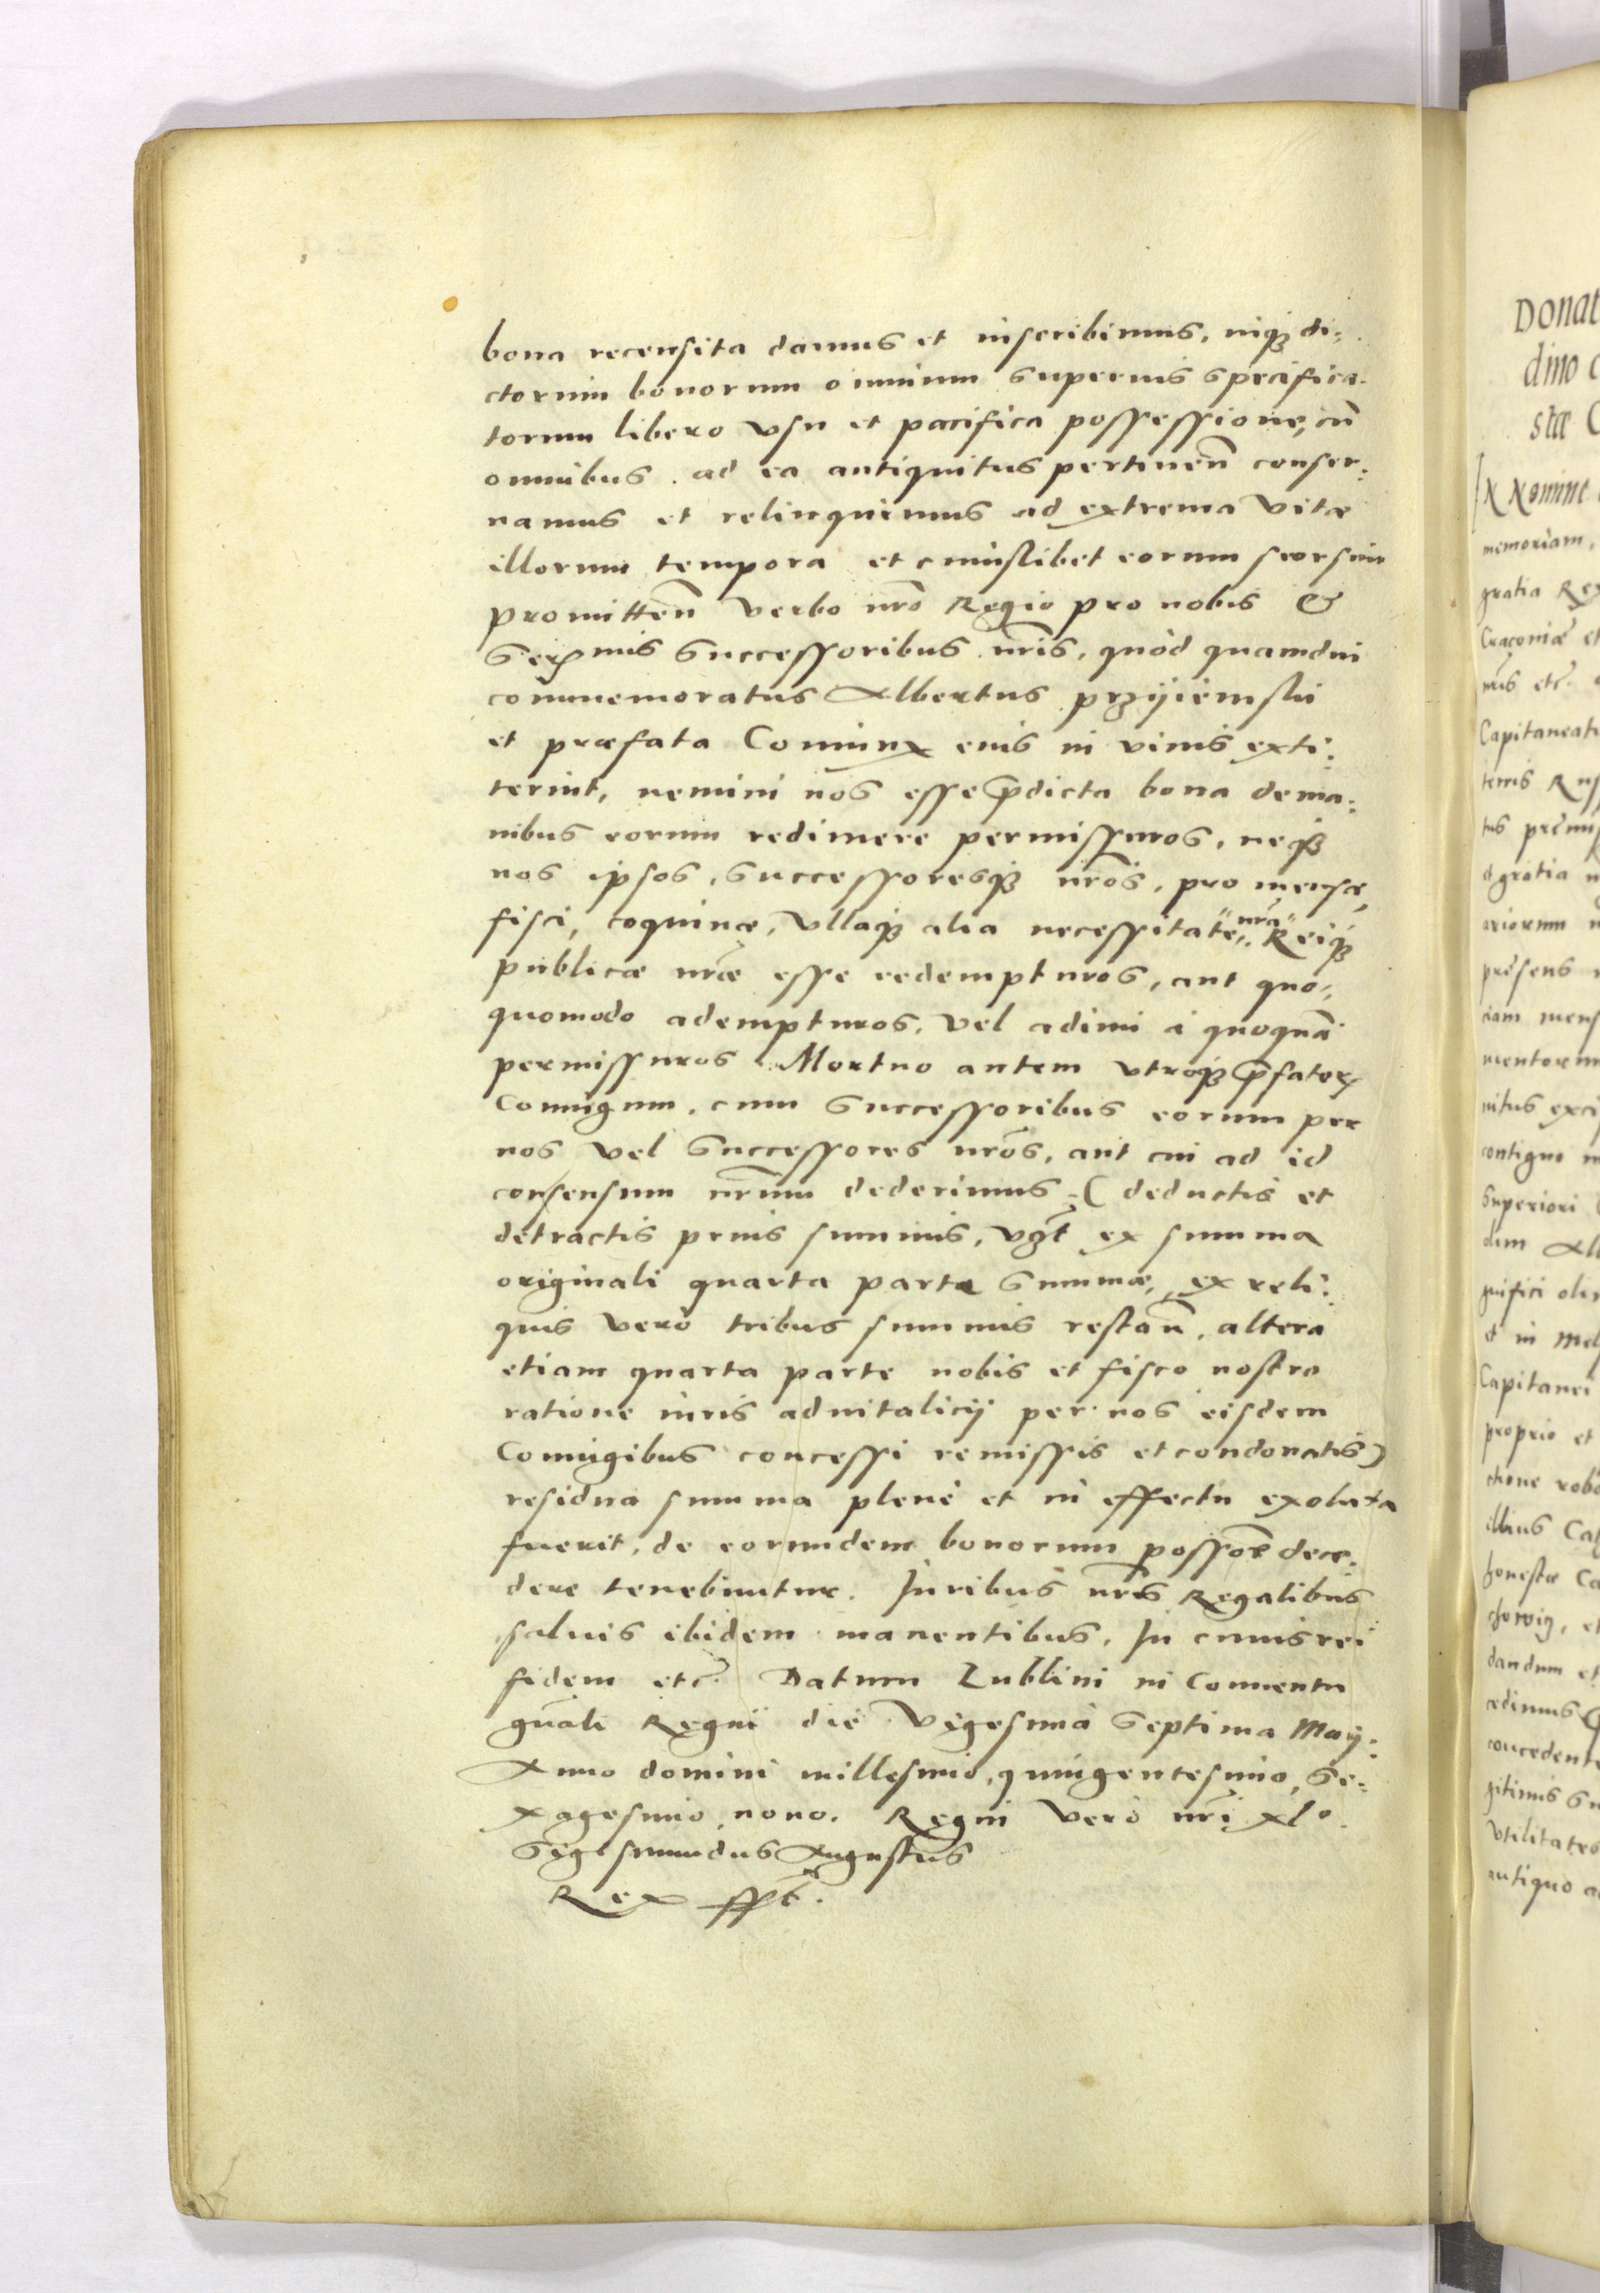 bona recensita damus et inscribimus, inq3 di-
ctorum bonorum omnium superius specifica-
torum libero vsu et pacifica possessione, cũ
omnibus ad ea antiquitus pertineñ conser-
uamus et relinquimus ad extrema vitæ
illorum tempora et cuiuslibet eorum seorsim
promitteñ verbo nr̃o Regio pro nobis &
Serẽmis Successoribus nr̃is, quòd quamdiu
commemoratus Albertus Przyiemski
et præfata Coniunx eius in viuis exti-
terint, nemini nos esse p̃dicta bona de ma-
nibus eorum redimere permissuros, neq3
nos ipsos, Successoresq3 nr̃os, pro mensæ,
fisci, coquinæ, vllaq3 alia necessitate nr̃a Reiq3
publicæ nr̃æ esse redempturos, aut quo-
quomodo adempturos, vel adimi à quoquã
permissuros. Mortuo autem vtroq3 p̃fator
Coniugum, cum Successoribus eorum per
nos vel Successores nr̃os, aut cui ad id
consensum nr̃um dederimus (deductis et
detractis prius summis, vgt̃ ex summa
originali quarta parte Summæ, ex reli-
quis verò tribus summis restañ, altera
etiam quarta parte nobis et fisco nostro
ratione iuris aduitalicij per nos eisdem
Coniugibus concessi remissis et condonatis)
residua summa plenè et in effectu exoluta
fuerit, de eorundem bonorum possõe dece-
dere tenebuntur. Iuribus nr̃is Regalibus
saluis ibidem manentibus, In cuius rei
fidem etc̃. Datum Lublini in Conuentu
gñali Regni die Vigesima Septima Maij.
Anno domini millesimo, quingentesimo, Se-
xagesimo, nono. Regni verò nr̃i xl°.
Sigismundus Augustus
Rex sspt̃.
Donat
dino c
stæ C
N Nomine
memoriam,
gratia Rex
Cracouiæ et
nus etc̃.
Capitaneat
terris Rus
tus præmis
gratia n
ariorum n
præsens
dam mens
mentorum
nitus exci
contiguo m
Superiori
dem Alb
gnifici olim
et in Mel
Capitanei
proprio et
ctione robo
illius Cap
honestæ Ca
chowig, et
dandum et
cedimus
concedente
gitimis Su
vtilitates
antiquo a